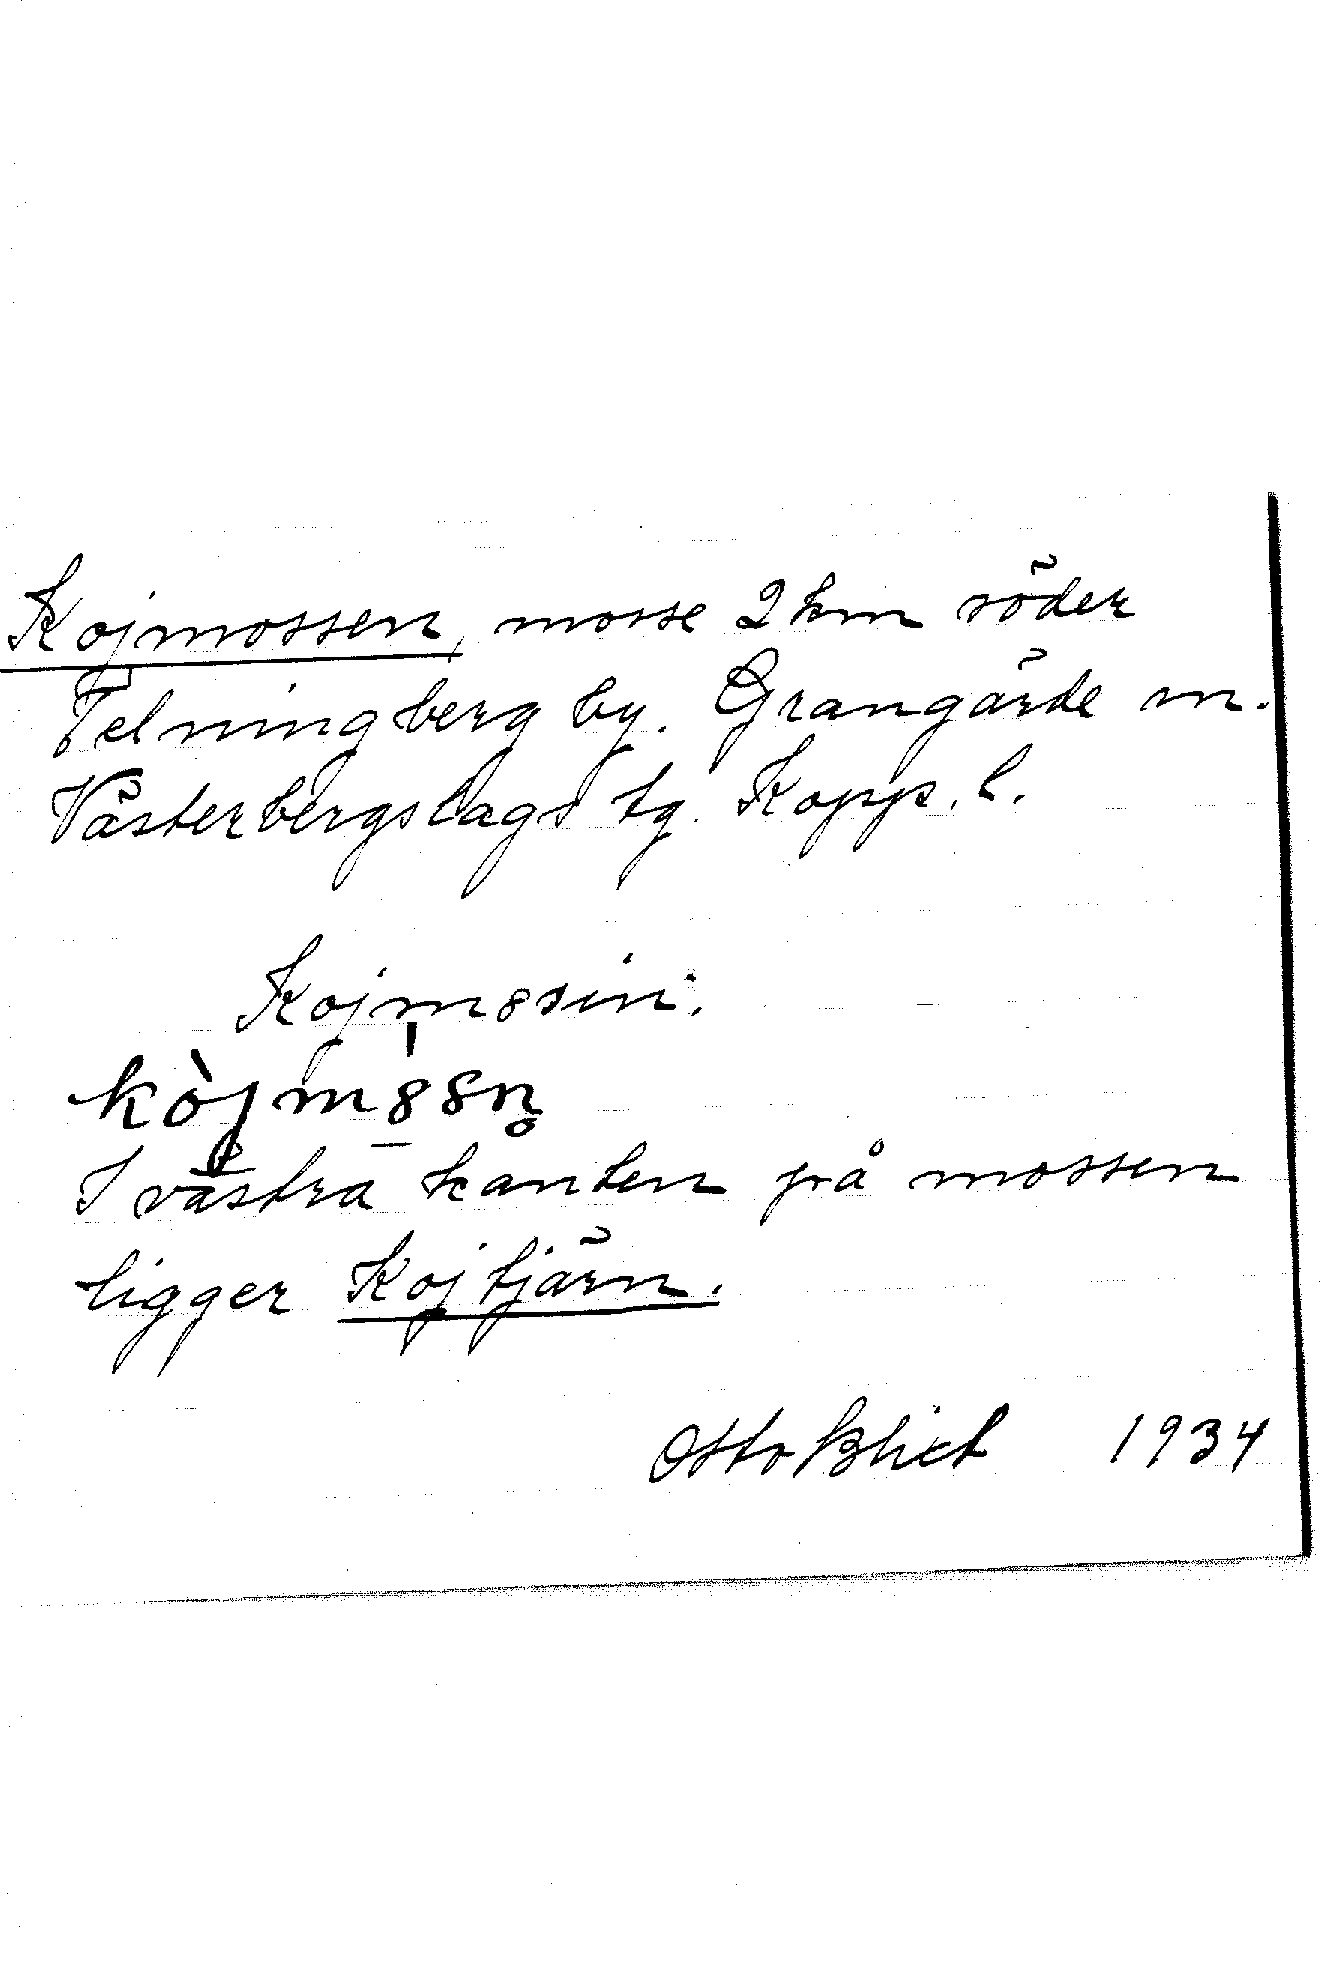 Kojmossen, mosse 2 km söder
Telningberg by. Grangärde sn.
Västerbergslags tg. Kopp. l.
Kojm8sin.
kòjm8̀8n̥
I västra kanten på mossen
ligger Kojtjärn.
Otto Blixt 1934